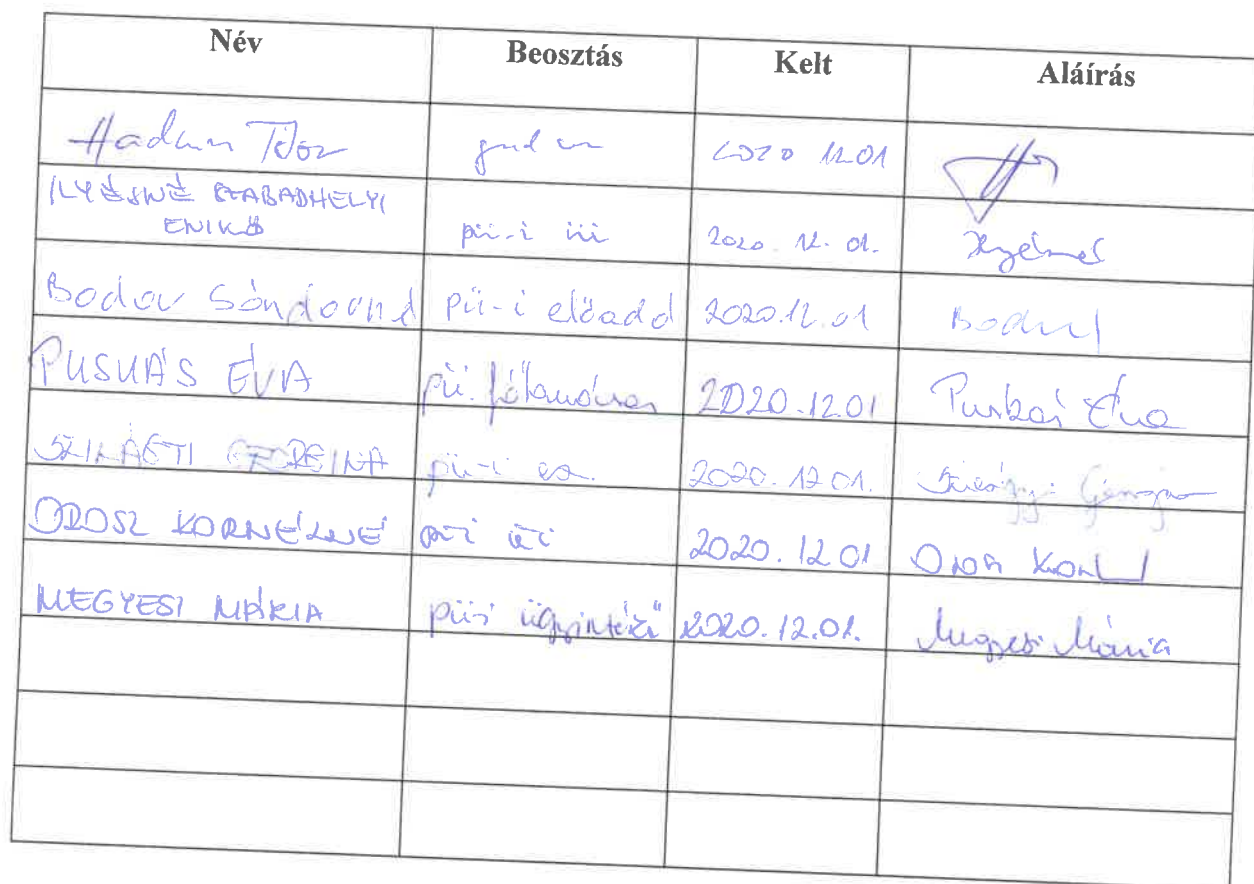 Név Beosztás Kelt Aláírás
Hadam Tibor 2020 12.01
ILYÉSNÉ SZABADHELYI
ENIKŐ pü-i üi 2020. 12. 01. Ilyésné
Bodor Sándorné pü-i előadó 2020.12.01 Bodorné
PUSKÁS ÉVA pü. főtanácsos 2020.12.01 Puskás Éva
SZILÁGYI GEORGINA pü-i 2020. 12 01. Szilágyi Georgina
OROSZ KORNÉLNÉ pü-i üi 2020. 12 01 Orosz Korn
MEGYESI MÁRIA püi ügyintéző 2020. 12.01. Megyesi Mária